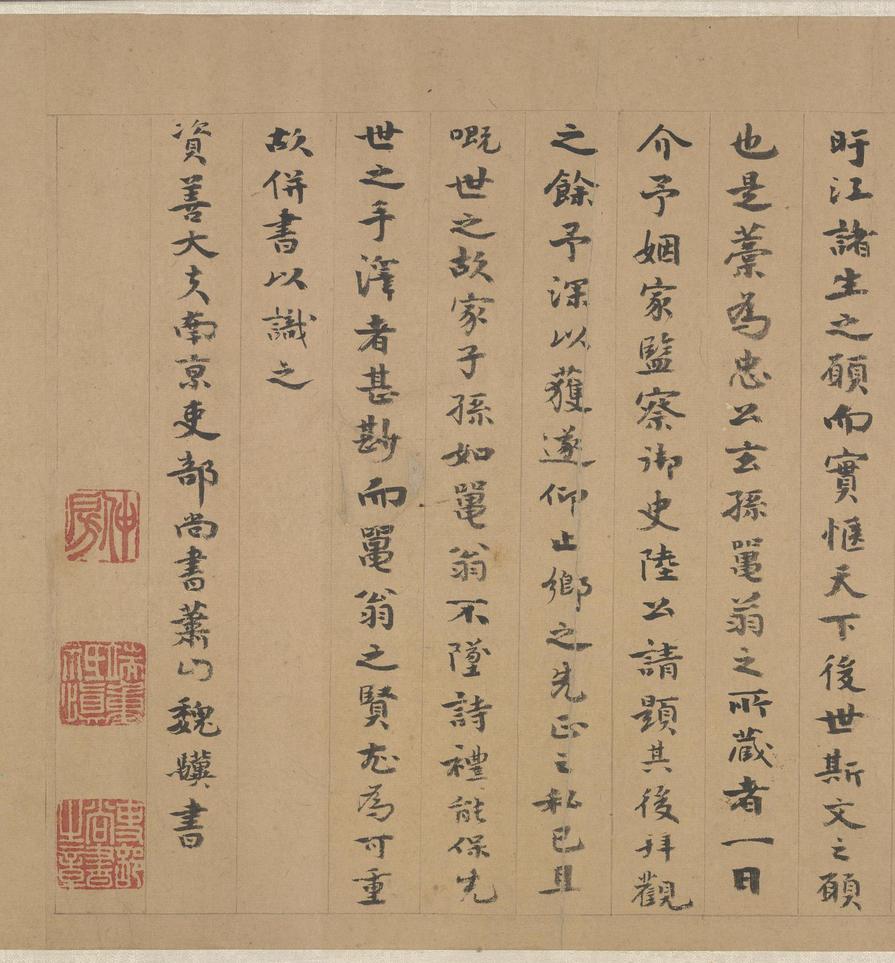 盱江諸生之願而實愜天下後世斯文之願
也是藁為忠公玄孫鼉翁之所蔵者一日
介予姻家監察御史陸公請題其後拜觀
之餘予深以獲遂仰止鄉之先正之私已且
嘅世之故家子孫如鼉翁不墜詩禮能保先
世之手澤者甚尠而鼉翁之賢尤為可重
故併書以識之
資善大夫南京吏部尚書蕭山魏驥書
仲房
吏部尚書之章